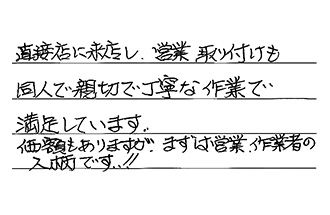 直接店に来店し、営業取り付けも
同人で親切で丁寧な作業で
満足しています。
価額もありますが、まずは営業、作業者の
人柄です..!!